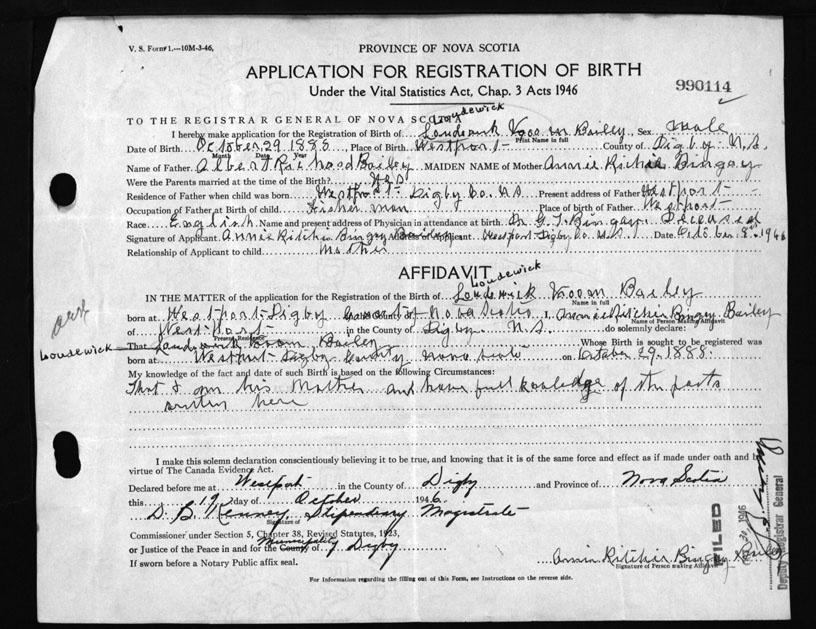 V. S. Form 1.—10M-3-46,
PROVINCE OF NOVA SCOTIA
APPLICATION FOR REGISTRATION OF BIRTH
Under the Vital Statistics Act, Chap. 3 Acts 1946
990114
TO THE REGISTRAR GENERAL OF NOVA SCOTIA
Loudewick
I hereby make application for the Registration of Birth of Bailey, Sex Male
Print Name in full
Date of Birth October 29 1888 Place of Birth Westport County of Digby N.S.
Month Date Year
Name of Father Albert Richard Bailey MAIDEN NAME of Mother Annie Richie Bingay
Were the Parents married at the time of the Birth? Yes
Residence of Father when child was born Westport Digby Co. NS Present address of Father Westport
Occupation of Father at Birth of child Fisherman Place of Birth of Father Westport
Race English Name and present address of Physician in attendance at birth Dr G. J. Bingay Deceased
Signature of Applicant Annie Ritchie Bingay Bailey Address of Applicant Westport Digby Co. N.S. Date October 8th 1946
Relationship of Applicant to child Mother
AFFIDAVIT
Loudewick
IN THE MATTER of the application for the Registration of Birth of Bailey
Name in full
born at Westport Digby County of Nova Scotia I, Annie Ritchie Bingay Bailey
Name of Person Making Affidavit
of Westport in the County of Digby N.S. do solemnly declare:
Present Residence
Loudewick
That Bailey Whose Birth is sought to be registered was
born at Westport Digby County Nova Scotia on October 29. 1888
My knowledge of the fact and date of such Birth is based on the following Circumstances:
That I am his Mother and have full knoledge of the facts
here
I make this solemn declaration conscientiously believing it to be true, and knowing that it is of the same force and effect as if made under oath and by
virtue of The Canada Evidence Act.
Declared before me at Westport in the County of Digby and Province of Nova Scotia
this 19 day of October 1946.
D. B. Kenney, Stipendiary Magistrate
Signature of
Commissioner under Section 5, Chapter 38, Revised Statutes, 1923,
Municipality
or Justice of the Peace in and for the County of Digby
If sworn before a Notary Public affix seal.
Annie Ritchie Bingay Bailey
Signature of Person making Affidavit
For Information regarding the filling out of this Form, see Instructions on the reverse side.
FILED
1946
Deputy Registrar General